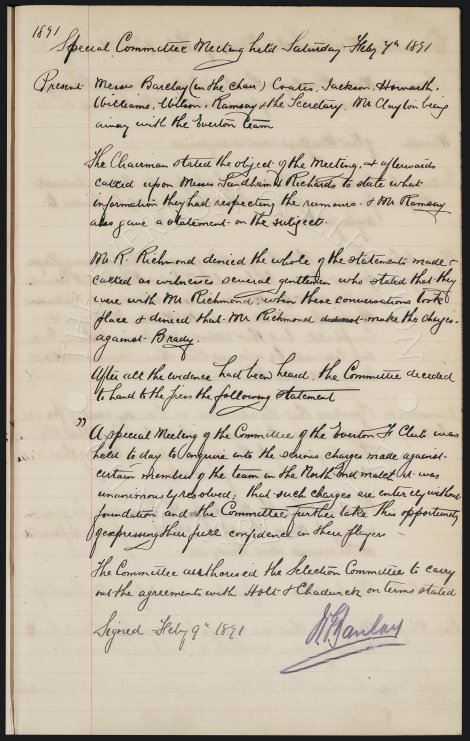 1891
Special Committee Meeting held Saturday Feby 7th 1891
Present Messrs Barclay (in the chair) Coates, Jackson, Howarth,
Williams, Wilson, Ramsay & the Secretary, Mr Clayton being
away with the Everton team
The Chairman stated the object of the Meeting, & afterwards
called upon Messrs Sandham & Richards to state what
information they had respecting the rumours. & Mr Ramsay
also gave a statement on the subject.
Mr R. Richmond denied the whole of the statements made &
called as witnesses several gentlemen who stated that they
were with Mr Richmond, when these conversations took
place & denied that Mr Richmond did not make the charges
against Brady.
After all the evidence had been heard, the Committee decided
to hand to the press the following statement
" A special Meeting of the Committee of the Everton F Club was
held to day to enquire into the serious charges made against
certain members of the team in the North End match, it was
unanimously resolved, that such charges are entirely without
foundation and the Committee further take this opportunity
of expressing their full confidence in their players
The Committee authorised the Selection Committee to carry
out the agreements with Holt & Chadwick on terms stated
Signed Feby 9th 1891